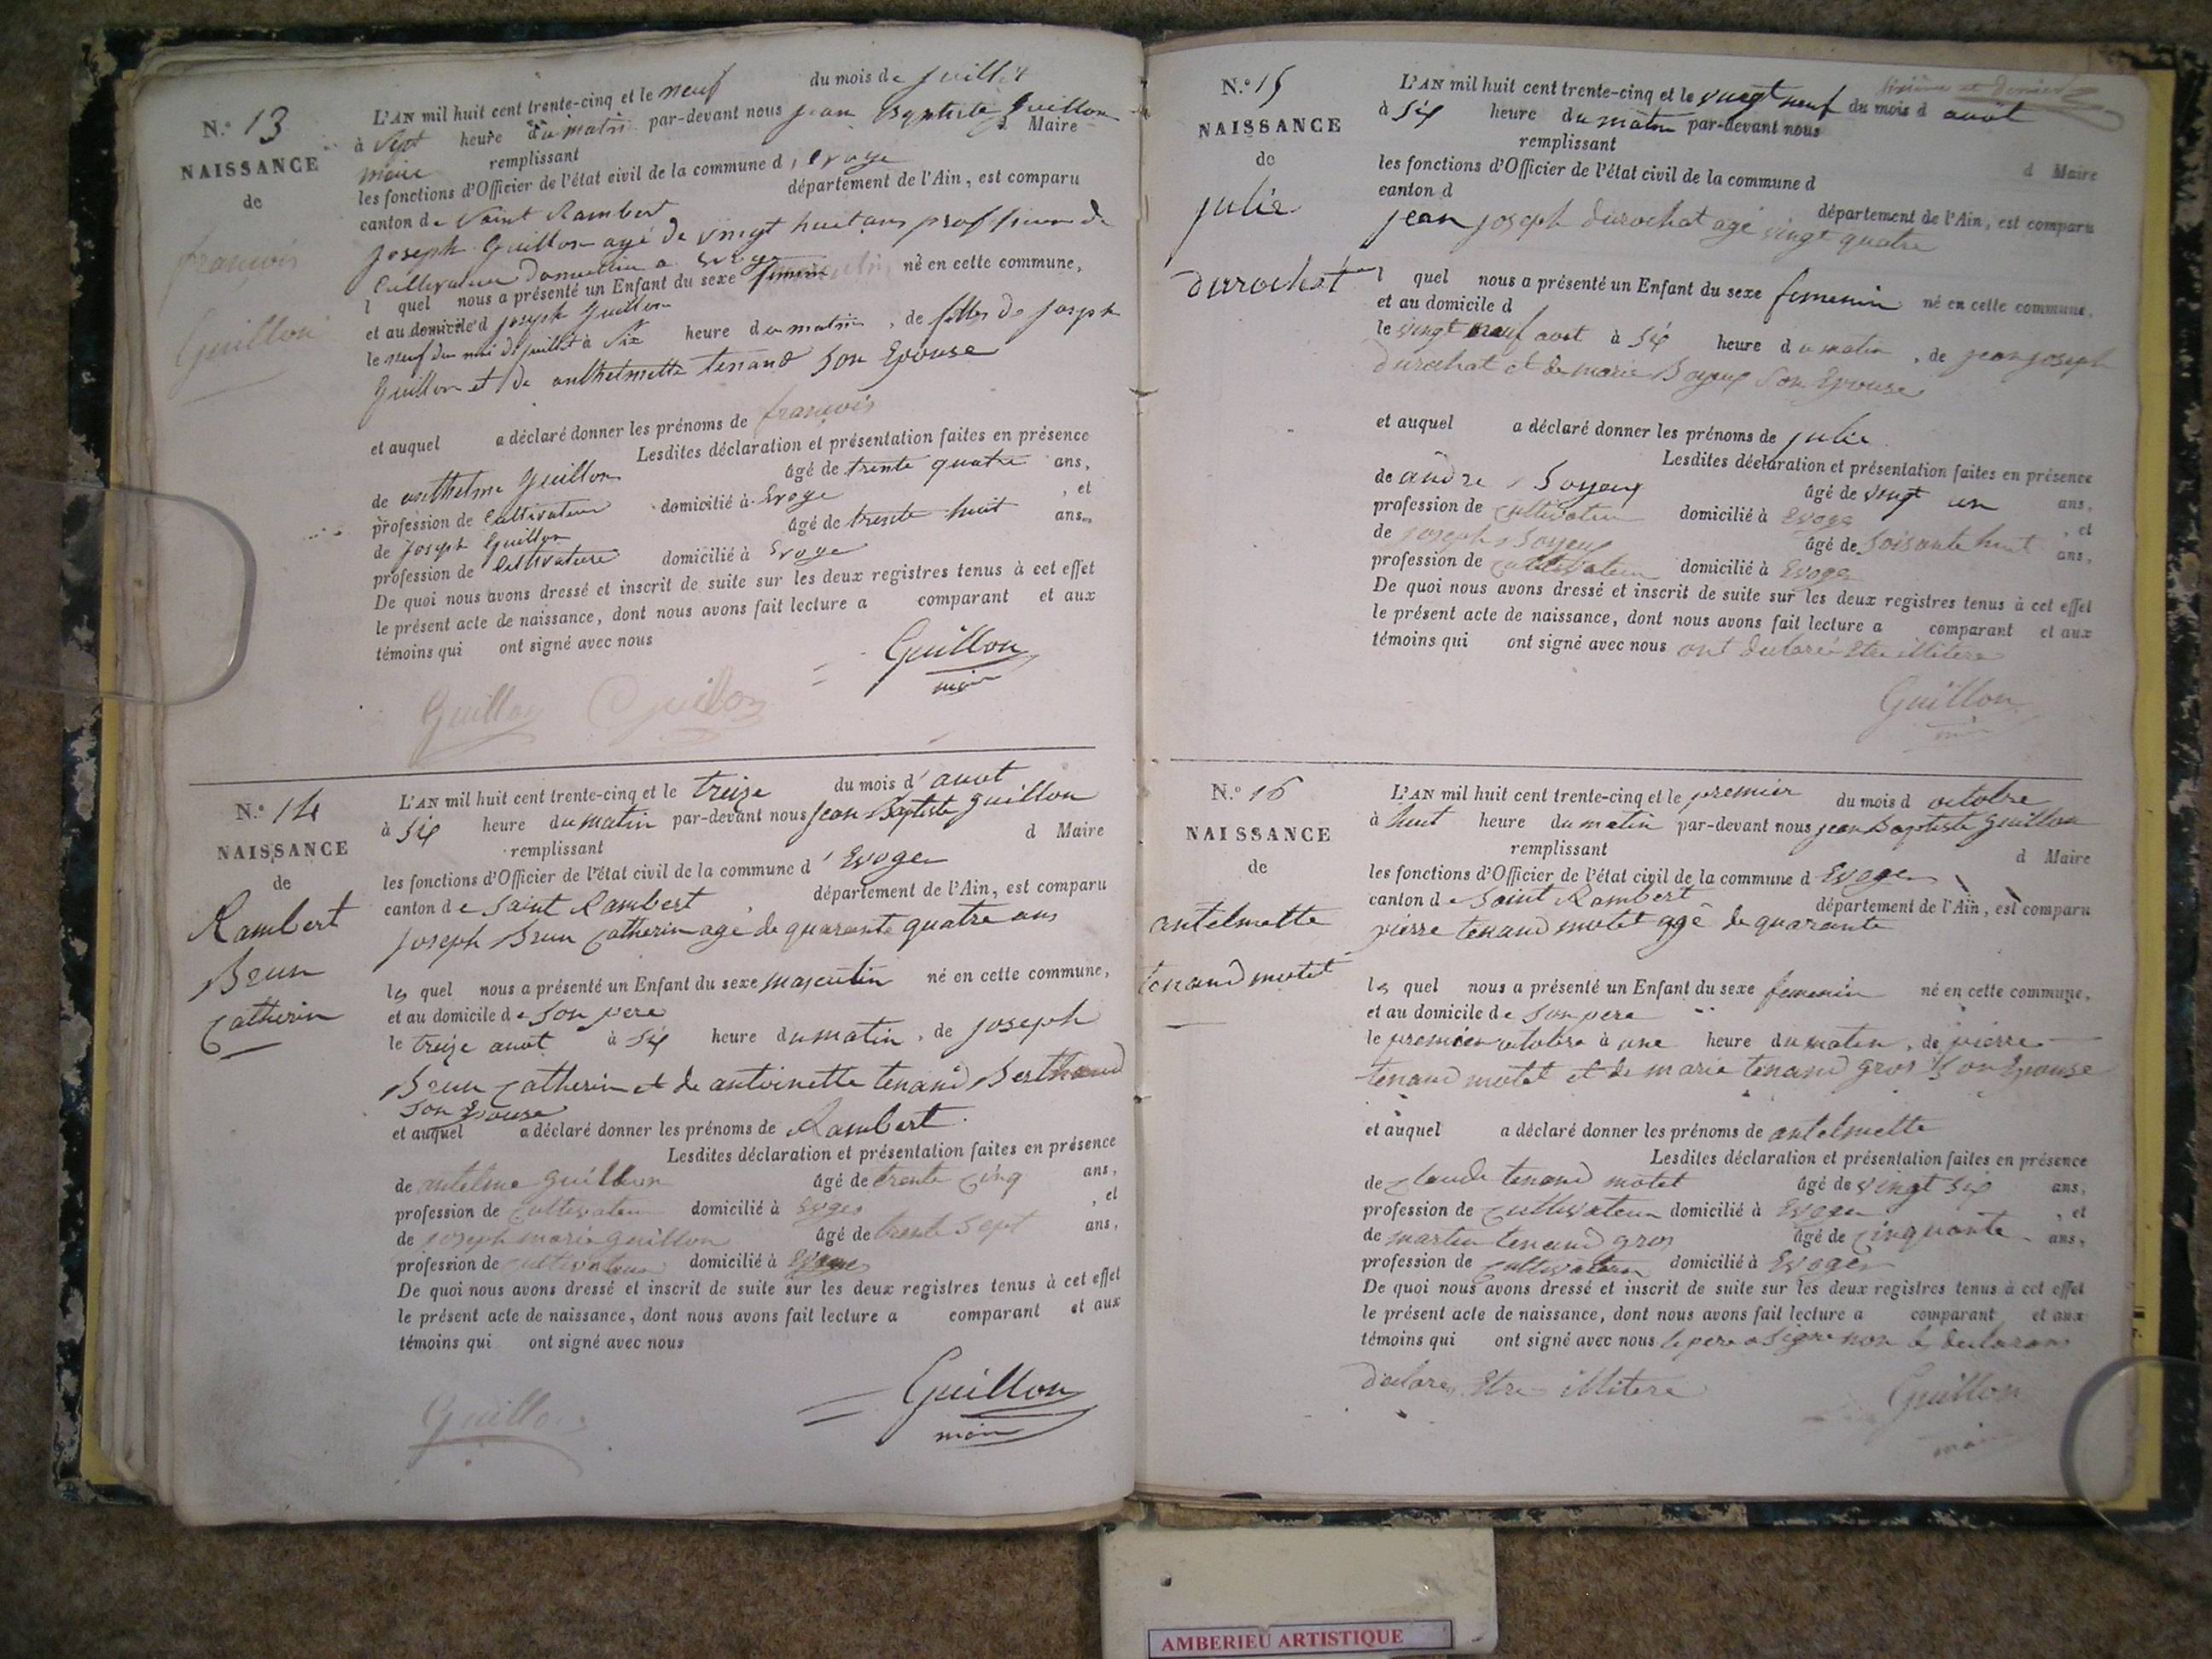 N.° 13
NAISSANCE
de
françois
Guillon
L'AN mil huit cent trente-cinq et le neuf du mois de juillet
à sept heure du matin par-devant nous jean Baptiste Guillon
maire remplissant d Maire
les fonctions d'Officier de l'état civil de la commune d'Evoge
canton de Saint Rambert département de l'Ain, est comparu
joseph Guillon agé de vingt huit ans proffession de
Cultivateur domicilie a Evoge
l quel nous a présenté un Enfant du sexe né en cette commune,
et au domicile d joseph Guillon
le neuf du moi de juillet à Six heure du matin, de joseph
Guillon et de anthelmette tenand Son Epouse
et auquel a déclaré donner les prénoms de françois
Lesdites déclaration et présentation faites en présence
de anthelme Guillon âgé de trente quatre ans,
profession de Cultivateur domicilié à Evoge , et
de joseph Guillon âgé de trente huit ans,
profession de Cultivateur domicilié à Evoge
De quoi nous avons dressé et inscrit de suite sur les deux registres tenus à cet effet
le présent acte de naissance, dont nous avons fait lecture a comparant et aux
témoins qui ont signé avec nous
Guillon
maire
Guillon Guillon
N.° 14
NAISSANCE
de
Rambert
Brun
Catherin
L'AN mil huit cent trente-cinq et le treize du mois d'auot
à Six heure du matin par-devant nous jean Baptiste Guillon
remplissant d Maire
les fonctions d'Officier de l'état civil de la commune d'Evoges
canton de Saint Rambert département de l'Ain, est comparu
joseph Brun Catherin agé de quarante quatre ans
le quel nous a présenté un Enfant du sexe masculin né en cette commune,
et au domicile de Son pere
le treize auot à Six heure du matin, de joseph
Brun Catherin et de antoinette tenand Berthaud
Son Epouse
et auquel a déclaré donner les prénoms de Rambert
Lesdites déclaration et présentation faites en présence
de antelme Guillon âgé de trente Cinq ans,
profession de Cultivateur domicilié à Evoges , et
de joseph marie Guillon âgé de trente Sept ans,
profession de Cultivateur domicilié à Evoges
De quoi nous avons dressé et inscrit de suite sur les deux registres tenus à cet effet
le présent acte de naissance, dont nous avons fait lecture a comparant et aux
témoins qui ont signé avec nous
Guillon
maire
Guillon
Sixième et dernier
N.° 15
NAISSANCE
de
julie
durochat
L'AN mil huit cent trente-cinq et le vingt neuf du mois d auot
à Six heure du matin par-devant nous
remplissant d Maire
les fonctions d'Officier de l'état civil de la commune d
canton d département de l'Ain, est comparu
jean joseph durochat agé vingt quatre
l quel nous a présenté un Enfant du sexe femenin né en cette commune,
et au domicile d
le vingt neuf auot à Six heure du matin, de jean joseph
durochat et de marie Boyeux Son Epouse
et auquel a déclaré donner les prénoms de julie
Lesdites déclaration et présentation faites en présence
de andre Boyeux âgé de vingt un ans,
profession de Cultivateur domicilié à Evoges , et
de joseph Boyeux âgé de Soisante huit ans,
profession de Cultivateur domicilié à Evoges
De quoi nous avons dressé et inscrit de suite sur les deux registres tenus à cet effet
le présent acte de naissance, dont nous avons fait lecture a comparant et aux
témoins qui ont signé avec nous ont declaré Etre illitere
Guillon
N.° 16
NAISSANCE
de
antelmette
tenand motet
L'AN mil huit cent trente-cinq et le premier du mois d octobre
à huit heure du matin par-devant nous jean Baptiste Guillon
remplissant d Maire
les fonctions d'Officier de l'état civil de la commune d Evoges
canton de Saint Rambert département de l'Ain, est comparu
pierre tenand motet agé de quarante
le quel nous a présenté un Enfant du sexe femenin né en cette commune,
et au domicile de Son pere
le premier octobre à une heure du matin, de pierre
tenand motet et de marie tenand gros Son Epouse
et auquel a déclaré donner les prénoms de antelmette
Lesdites déclaration et présentation faites en présence
de Claude tenand motet âgé de vingt Six ans,
profession de Cultivateur domicilié à Evoges , et
de martin tenand gros âgé de Cinquante ans,
profession de Cultivateur domicilié à Evoges
De quoi nous avons dressé et inscrit de suite sur les deux registres tenus à cet effet
le présent acte de naissance, dont nous avons fait lecture a comparant et aux
témoins qui ont signé avec nous le pere a Signe non les declarans
declares Etre illitere
Guillon
maire
AMBERIEU ARTISTIQUE